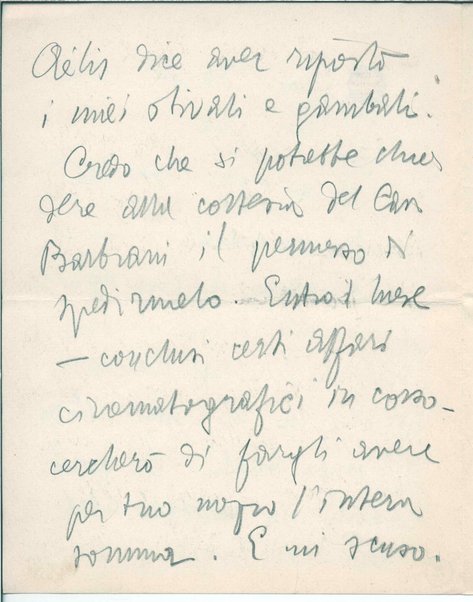 Aélis dice aver riposto
i miei stivali e gambali.
Credo che si potrebbe chie
dere alla cortesia del Cav
Barbiani il permesso di
spedirmelo. Entro il mese
— conclusi certi affari
cinematografici in corso —
cercherò di fargli avere
per tuo mezzo l'intera
somma. E mi scuso.